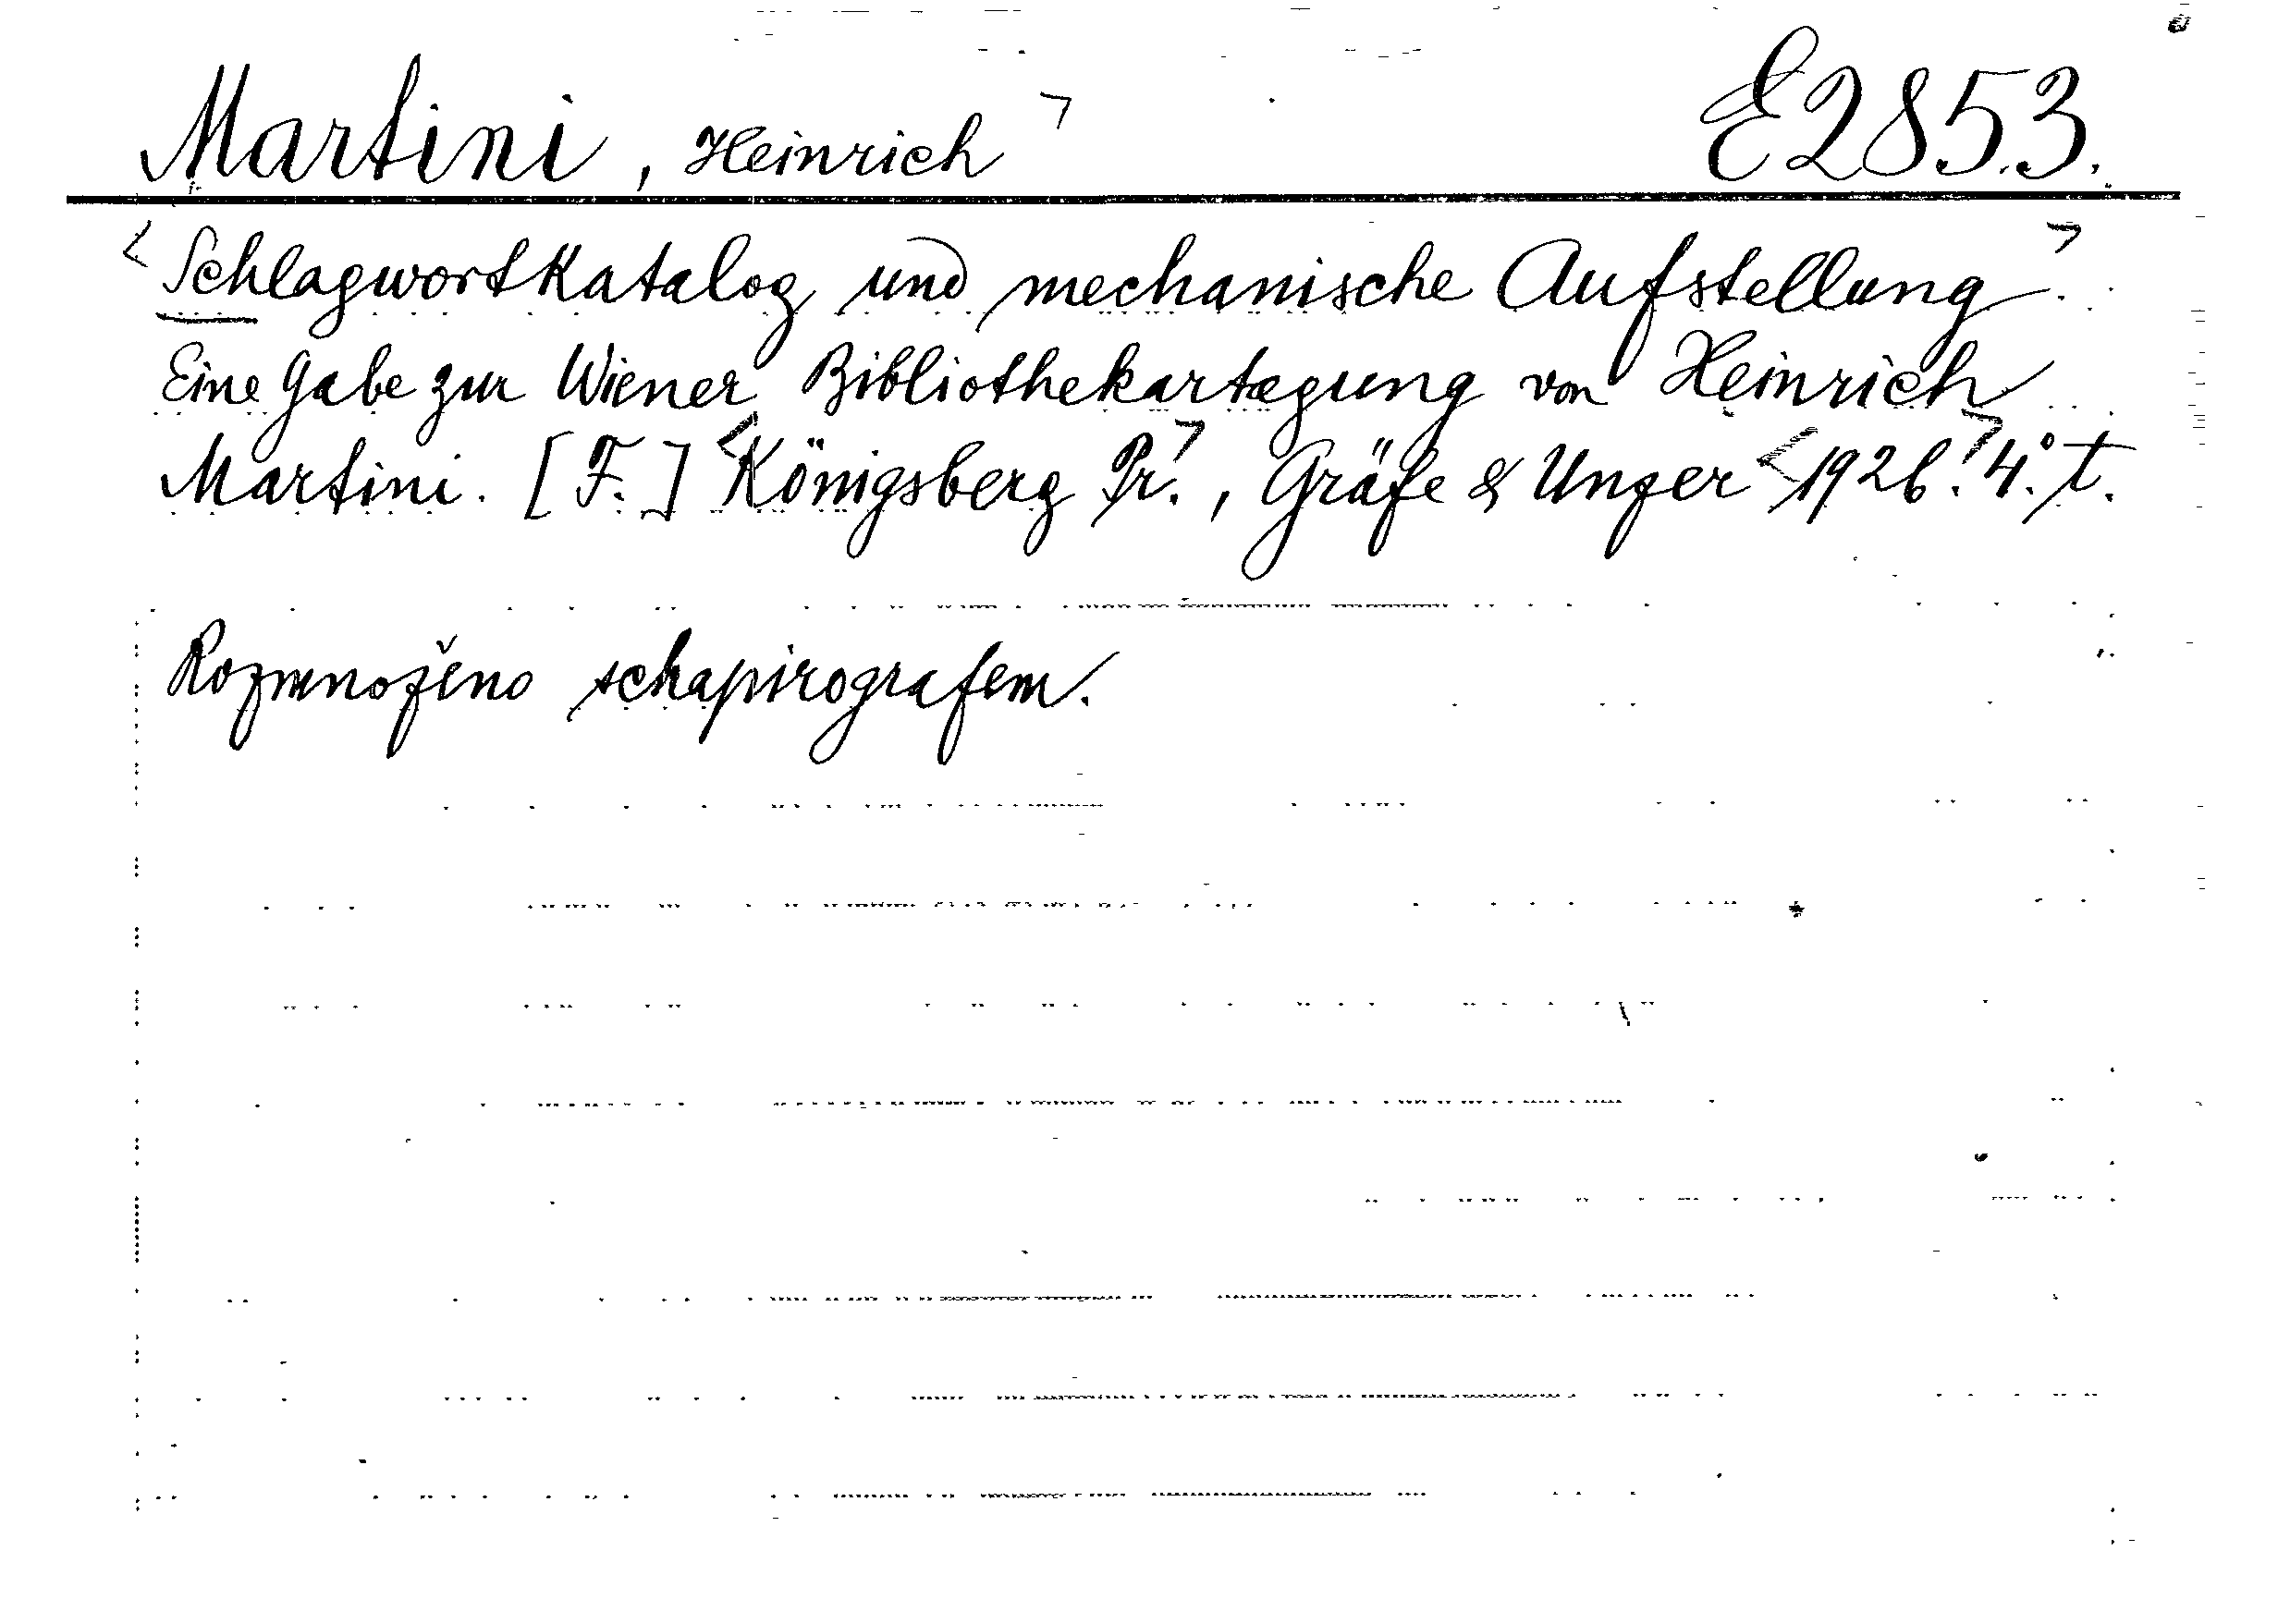 Martini, Heinrich > E 2853.
< Schlagwortkatalog und mechanische Aufstellung >.
Eine Gabe zur Wiener Bibliothekartagung von Heinrich
Martini. [F.] < Königsberg Pr. >, Gräfe & Unzer < 1926. > 4°. t.
Rozmnoženo schapirografem.